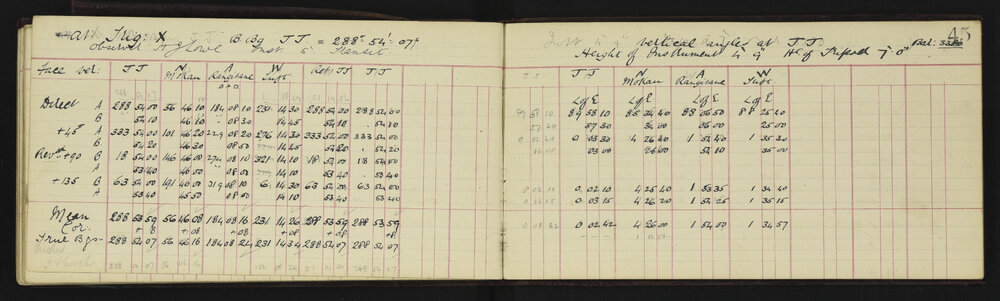 At Trig: X B Bg J J = 288° 54' 07"
observer H J Lowe Inst. 5" Transit
Face bel: J J N Mokau A Rangitane W Tuft Retn J J J J
Direct A 288 54 00 56 46 10 184 08 10 231 14 30 288 54 30 288 54 00
B 54 10 46 10 08 30 14 45 54 10 54 10
+45 A 333 54 00 101 46 20 229 08 20 276 14 30 333 54 00 333 54 00
B 54 20 46 30 08 00 14 25 54 20 54 20
Revsd +90 B 18 54 00 146 46 00 274 08 10 321 14 10 18 54 00 18 54 00
A 53 40 46 00 08 00 14 10 53 40 53 40
+135 B 63 54 00 191 46 00 319 08 10 6 14 30 63 54 00 63 54 00
A 53 40 45 50 08 00 14 10 53 40 53 40
Mean 288 53 59 56 46 08 184 08 16 231 14 26 288 53 59 288 53 59
Cor. + 8 + 8 + 08 + 08 + 08 + 8
True Bgs 288 54 07 56 46 16 184 08 24 231 14 34 288 54 07 288 54 07
45
vertical angles at J J
Height of Instrument 4' 9" Ht of Tripod 7' 0"
J J N Mokau A Rangitane W Tuft
L of E L of E L of E L of E
89 58 10 85 34 40 88 06 50 88 25 40
57 30 34 00 06 00 25 00
0 03 30 4 26 40 1 54 40 1 35 30
03 00 26 00 54 10 35 00
0 02 10 4 25 40 1 53 35 1 34 40
0 03 15 4 26 20 1 54 25 1 35 15
0 02 42 4 26 00 1 54 00 1 34 57